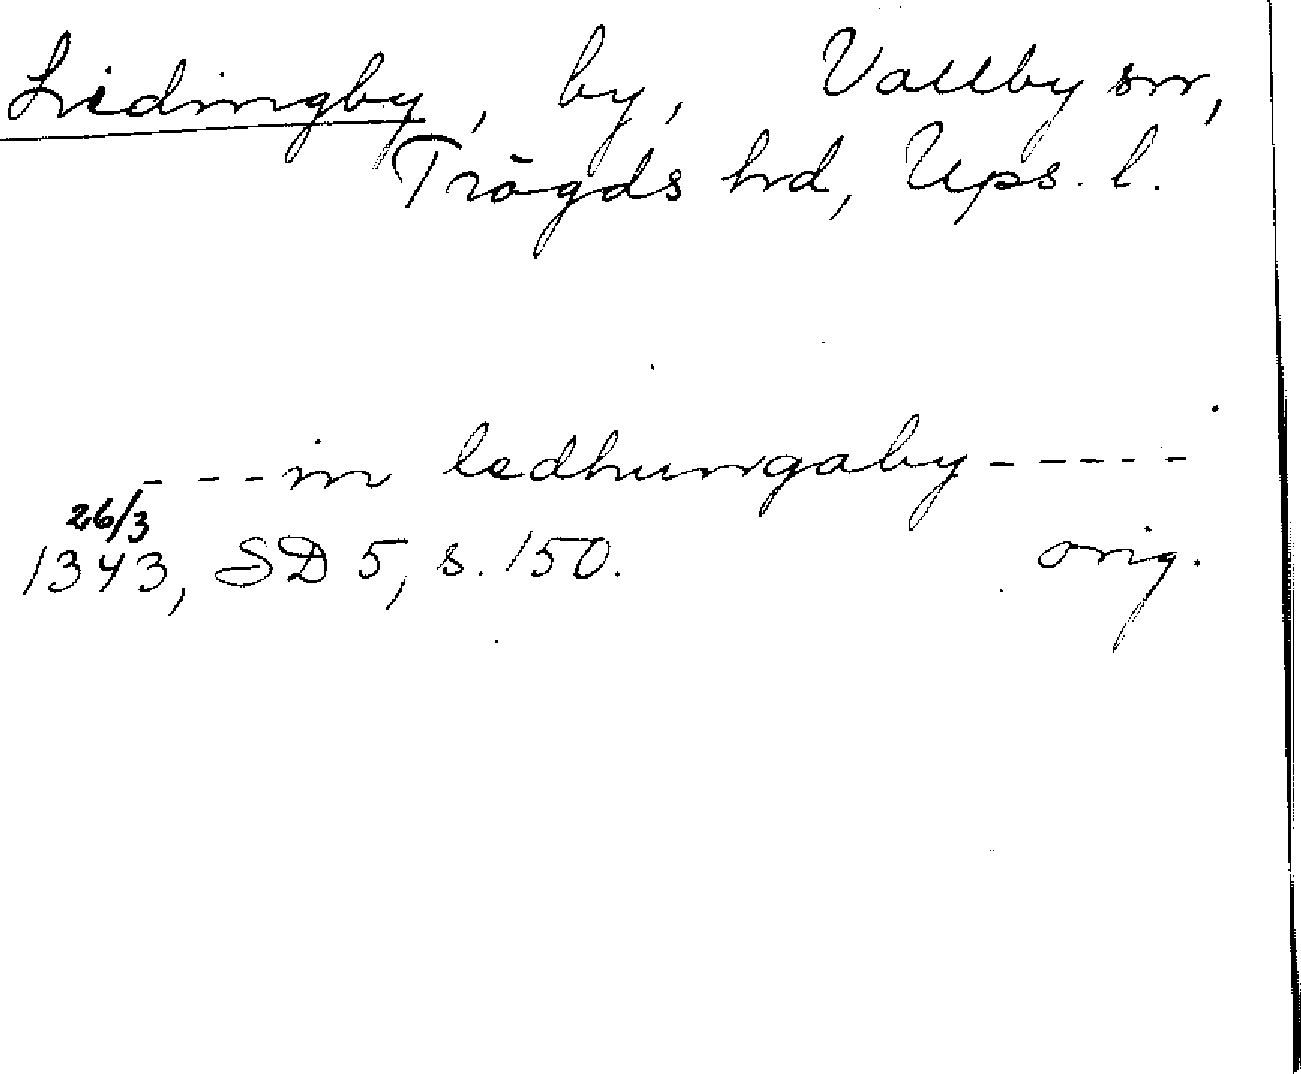 Lidingby, by, Vallby sn,
Trögds hrd, Ups. l.
- - - in ledhungaby - - - - -
26/3
1343, SD 5, s. 150. orig.